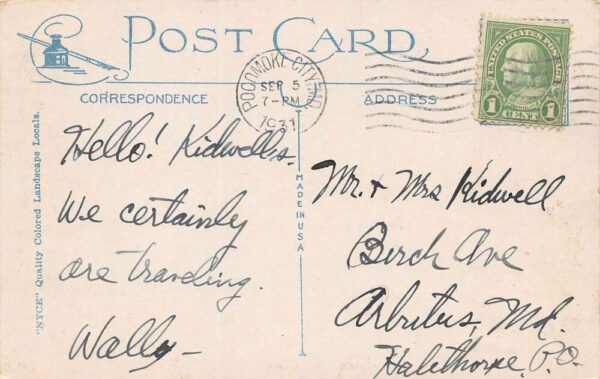 POST CARD
POCOMOKE CITY, MD.
SEP 5
7-PM
1931
UNITED STATES POSTAGE
FRANKLIN
1 CENT 1
CORRESPONDENCE
ADDRESS
Hello! Kidwells.
We certainly
are traveling.
Wally-
MADE IN USA
Mr. + Mrs Kidwell
Birch Ave
Arbutus, Md.
Halethorpe P.O.
"NYCE" Quality Colored Landscape Locals.